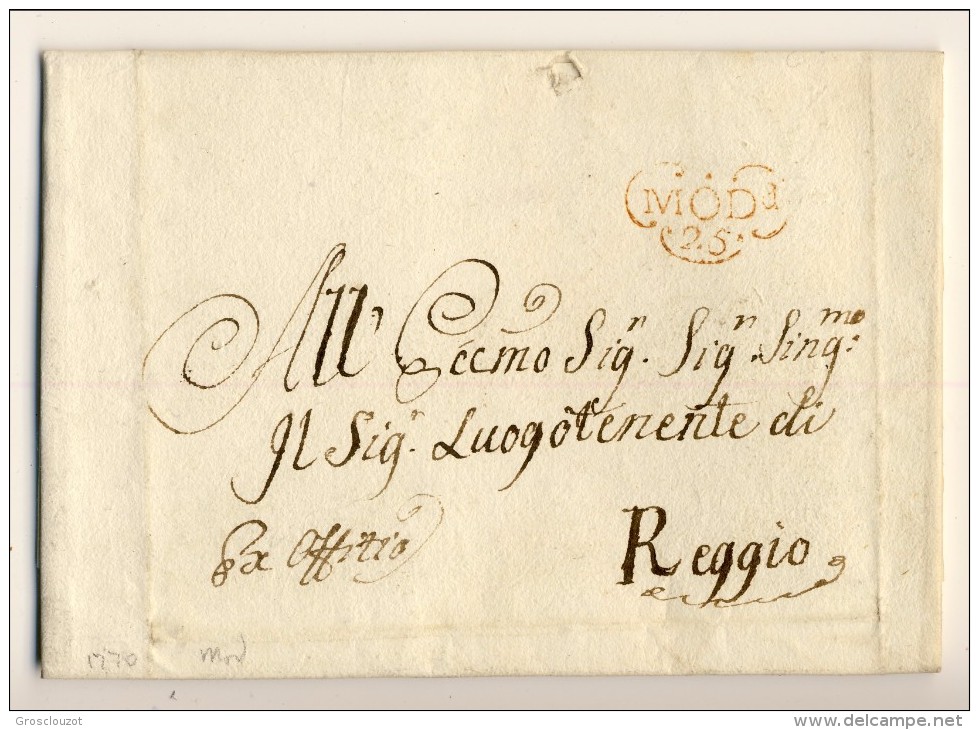 MODa
25
All' Eccmo Sign. Sign. Singmo:
Il Sigr. Luogotenente di
Reggio
Ex Offitio
1770
Mod
Grosclouzot
www.delcampe.net